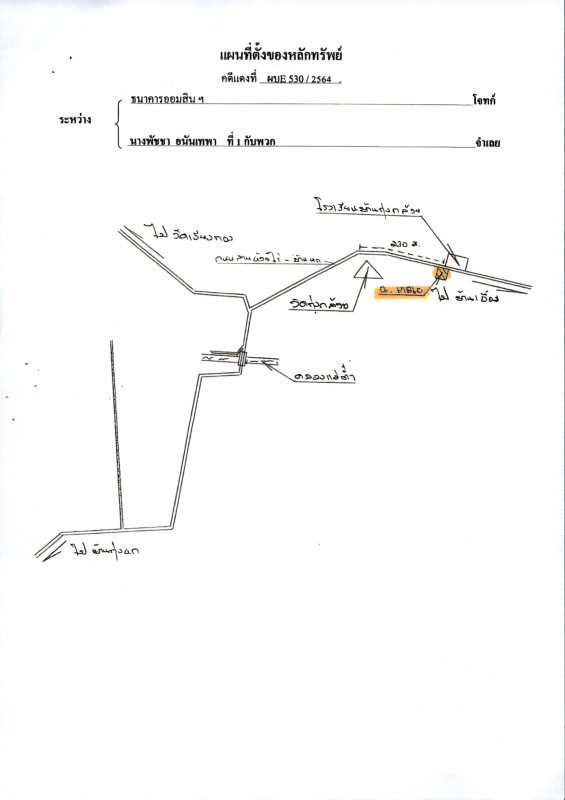 แผนที่ตั้งของหลักทรัพย์
คดีแดงที่ ผบE 530 / 2564 .
ธนาคารออมสิน ฯ โจทก์
ระหว่าง
นางพัชชา อนันเทพา ที่ 1 กับพวก จำเลย
โรงเรียนบ้านทุ่งกล้วย
ไป วัดเวียงทอง
230 ม.
ถนนสาน
วัดทุ่งกล้วย
ไป บ้านเอื้อง
คลองแม่ต๋ำ
ไป บ้าน